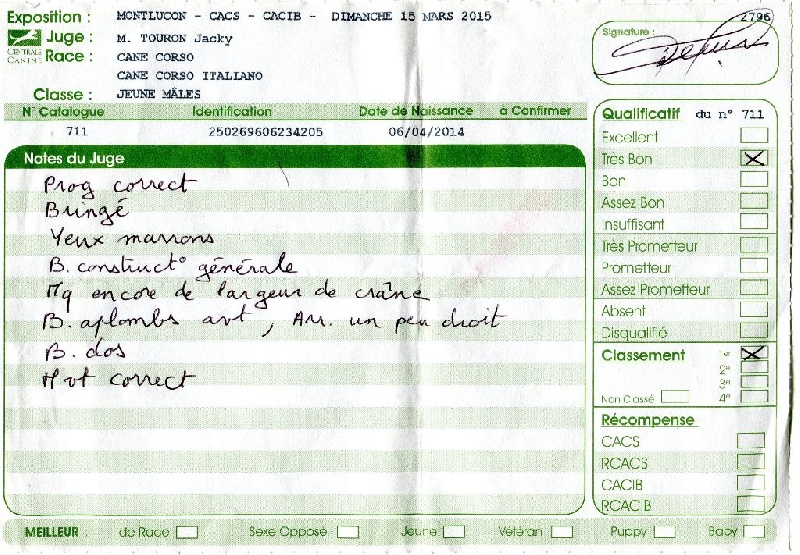 Exposition : MONTLUCON - CACS - CACIB - DIMANCHE 15 MARS 2015
2796
Juge : M. TOURON Jacky
CENTRALE CANINE
Race : CANE CORSO
CANE CORSO ITALIANO
Classe : JEUNE MÂLES
Signature :
N° Catalogue Identification Date de Naissance à Confirmer
711 250269606234205 06/04/2014
Notes du Juge
Prog correct
Bringé
Yeux marrons
B. construct° générale
Mq encore de largeur de crâne
B. aplombs avt, Arr. un peu droit
B. dos
Mvt correct
Qualificatif du n° 711
Excellent
Très Bon X
Bon
Assez Bon
Insuffisant
Très Prometteur
Prometteur
Assez Prometteur
Absent
Disqualifié
Classement 1er X
2e
3e
Non Classé 4e
Récompense
CACS
RCACS
CACIB
RCACIB
MEILLEUR : de Race Sexe Opposé Jeune Vétéran Puppy Baby